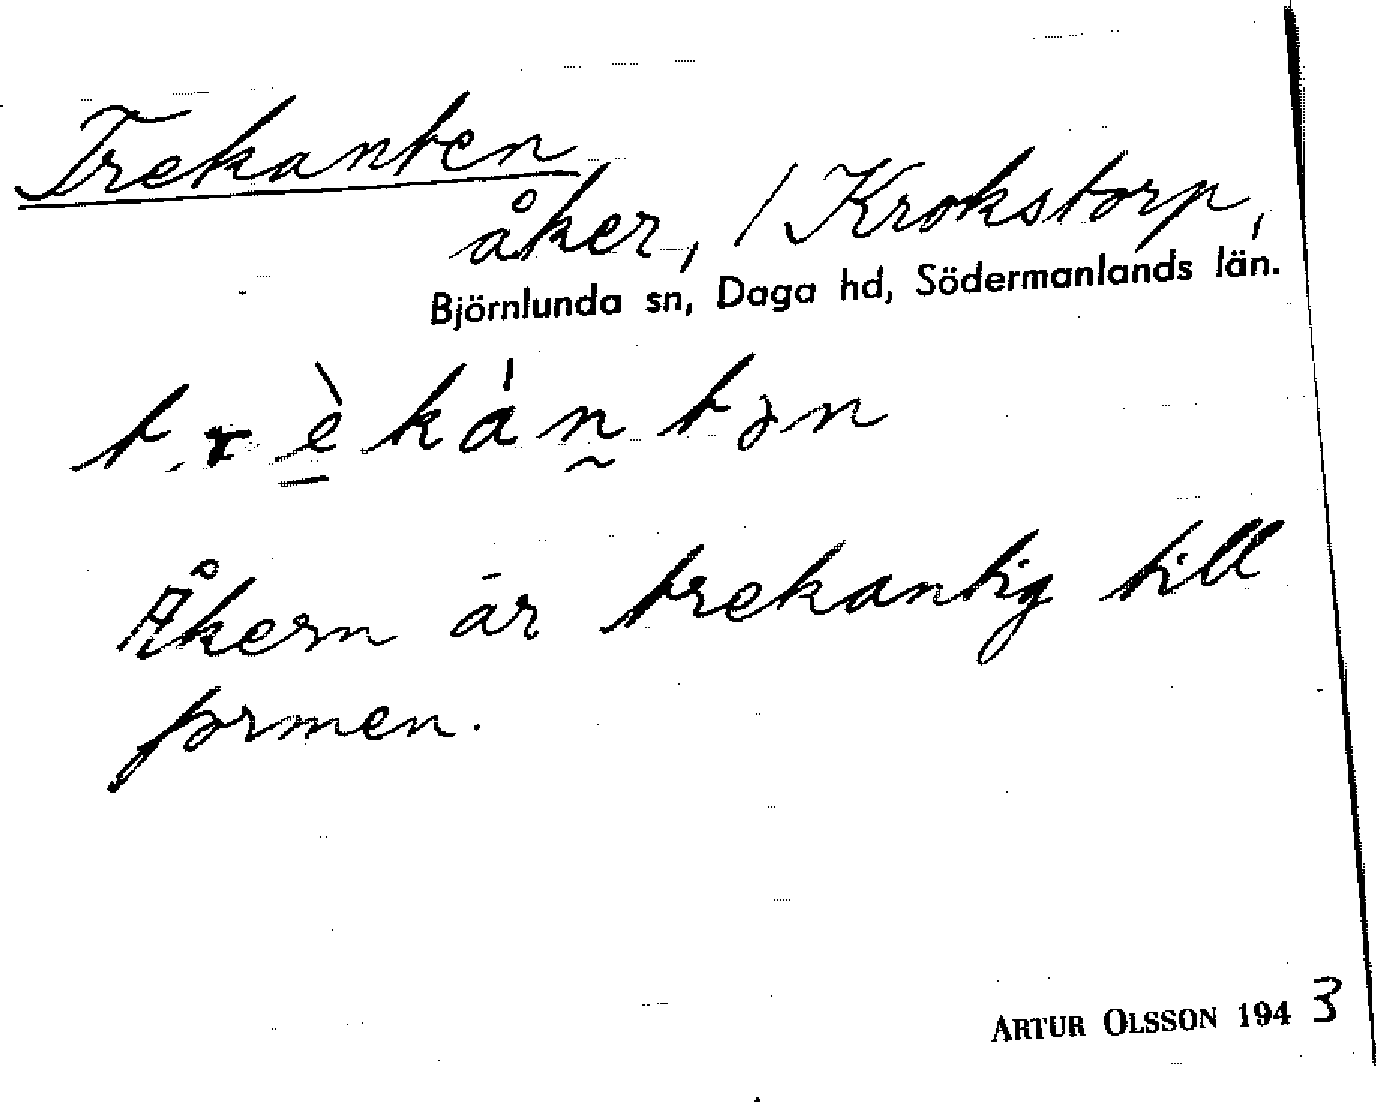 Trekanten
åker, / Krokstorp,
Björnlunda sn, Daga hd, Södermanlands län.
trèkán̰tən
Åkern är trekantig till
formen.
ARTUR OLSSON 1943